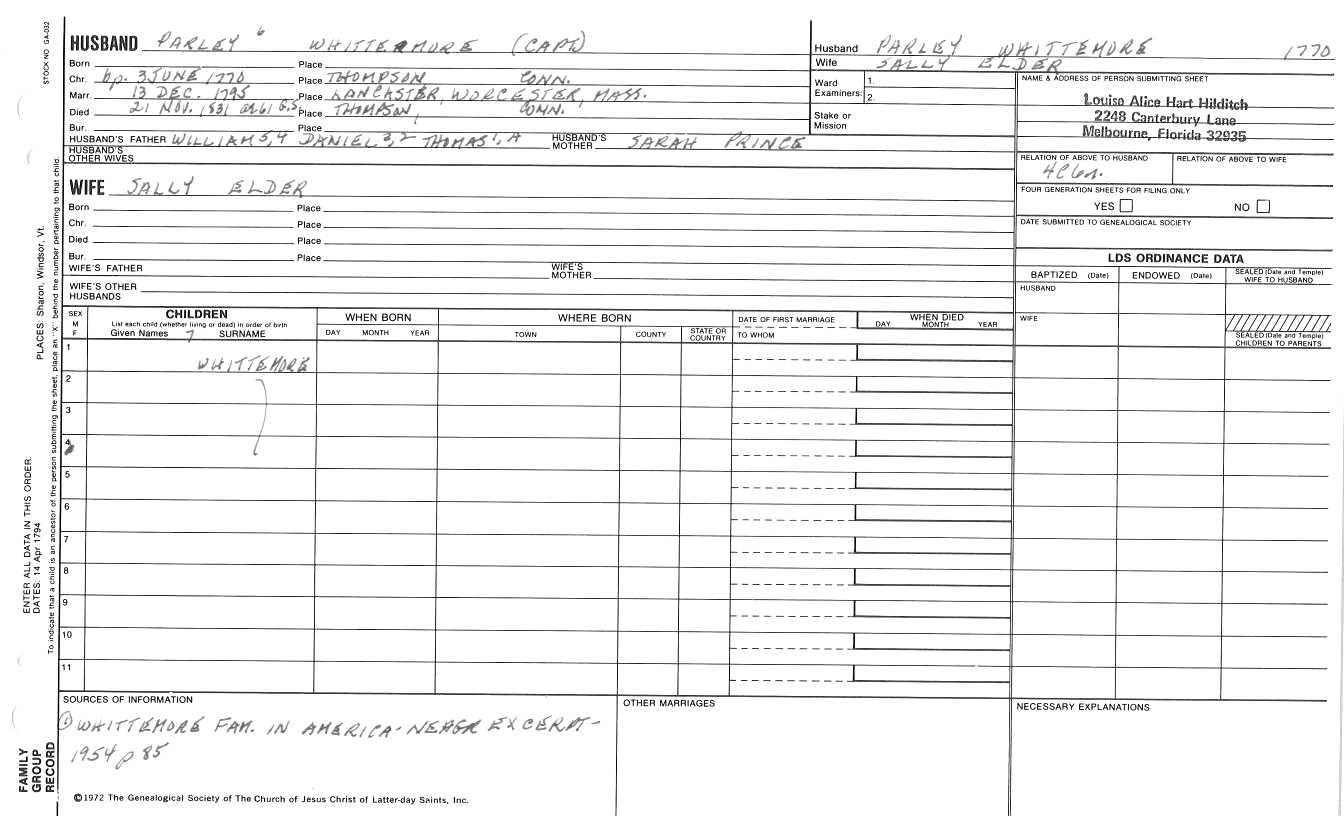 STOCK NO GA-032
HUSBAND PARLEY 6 WHITTEMORE (CAPT)
Born Place
Chr. bp. 3 JUNE 1770 Place THOMPSON, CONN.
Marr. 13 DEC. 1795 Place LANCASTER, WORCESTER, MASS.
Died 21 NOV. 1831 ae 61 G.S. Place THOMPSON, CONN.
Bur. Place
HUSBAND'S FATHER WILLIAM 5,4 DANIEL 3,2 THOMAS 1, A HUSBAND'S MOTHER SARAH PRINCE
HUSBAND'S OTHER WIVES
Husband PARLEY WHITTEMORE 1770
Wife SALLY ELDER
Ward Examiners: 1.
2.
Stake or Mission
NAME & ADDRESS OF PERSON SUBMITTING SHEET
Louise Alice Hart Hilditch
2248 Canterbury Lane
Melbourne, Florida 32935
RELATION OF ABOVE TO HUSBAND RELATION OF ABOVE TO WIFE
4C6r.
FOUR GENERATION SHEETS FOR FILING ONLY
YES NO
DATE SUBMITTED TO GENEALOGICAL SOCIETY
WIFE SALLY ELDER
Born Place
Chr. Place
Died Place
Bur. Place
WIFE'S FATHER WIFE'S MOTHER
WIFE'S OTHER HUSBANDS
LDS ORDINANCE DATA
BAPTIZED (Date) ENDOWED (Date) SEALED (Date and Temple) WIFE TO HUSBAND
HUSBAND
WIFE
SEALED (Date and Temple) CHILDREN TO PARENTS
SEX M F
CHILDREN
List each child (whether living or dead) in order of birth
Given Names 7 SURNAME
WHEN BORN
DAY MONTH YEAR
WHERE BORN
TOWN COUNTY STATE OR COUNTRY
DATE OF FIRST MARRIAGE
TO WHOM
WHEN DIED
DAY MONTH YEAR
1 WHITTEMORE
2
3
4
5
6
7
8
9
10
11
PLACES: Sharon, Windsor, Vt.
ENTER ALL DATA IN THIS ORDER:
DATES: 14 Apr 1794
To indicate that a child is an ancestor of the person submitting the sheet, place an "X" behind the number pertaining to that child.
FAMILY GROUP RECORD
SOURCES OF INFORMATION
① WHITTEMORE FAM. IN AMERICA - NEAGR EXCERPT -
1954 p 85
OTHER MARRIAGES
NECESSARY EXPLANATIONS
©1972 The Genealogical Society of The Church of Jesus Christ of Latter-day Saints, Inc.